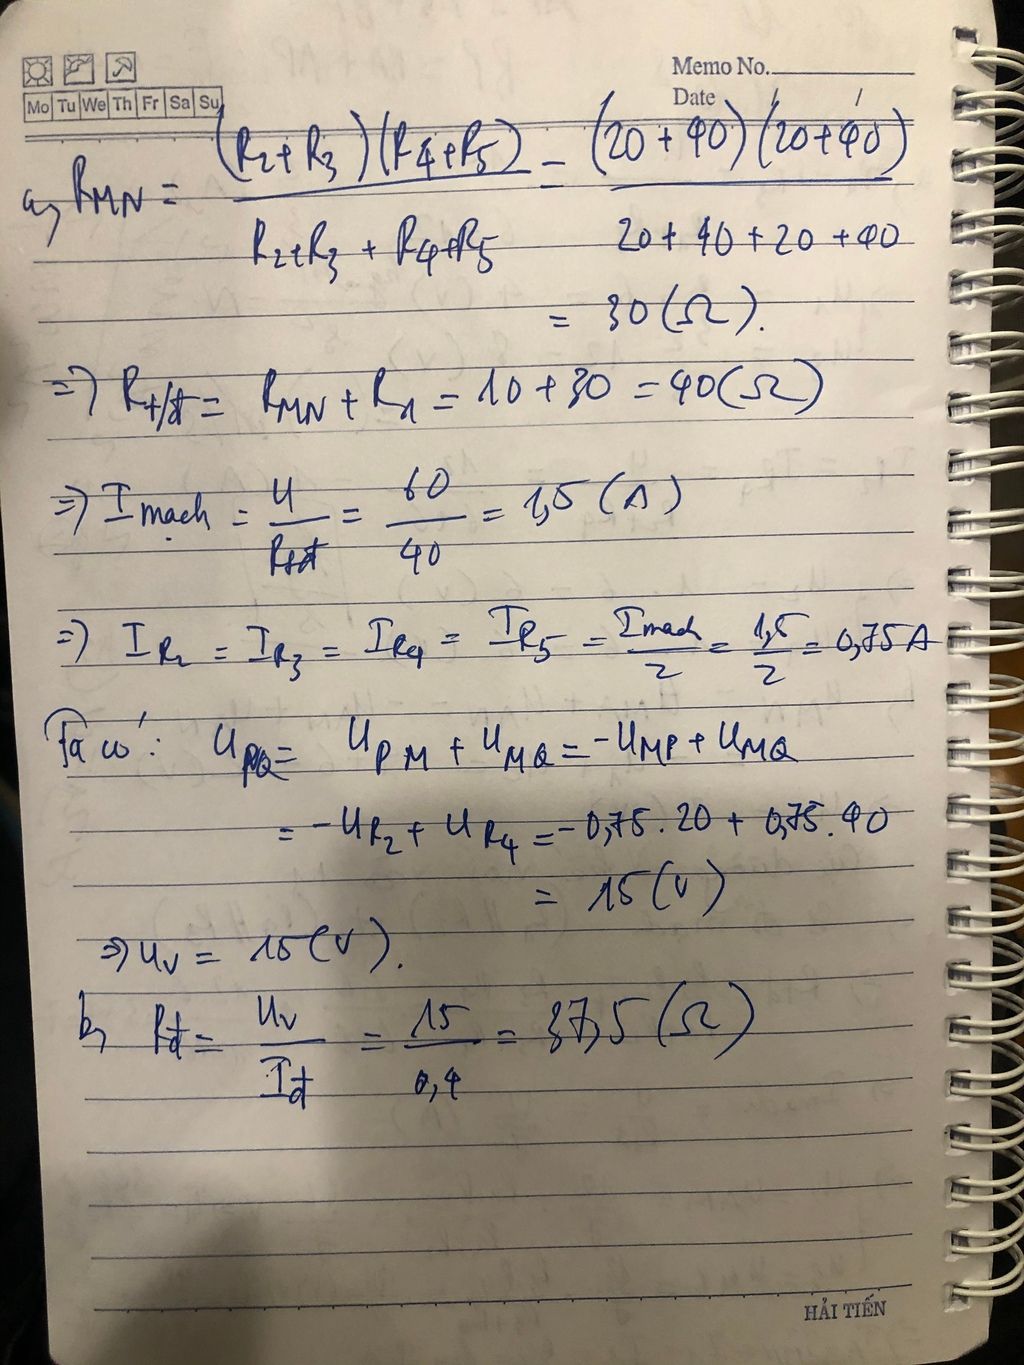 Memo No.
Mo Tu We Th Fr Sa Su
Date / /
a, R_MN = (R2+R3)(R4+R5) / (R2+R3 + R4+R5) = (20+40)(20+40) / (20+40+20+40)
= 30 (Ω).
=> Rtđ = RMN + R1 = 10 + 30 = 40 (Ω)
=> I mạch = U / Rtđ = 60 / 40 = 1,5 (A)
=> IR2 = IR3 = IR4 = IR5 = I mach / 2 = 1,5 / 2 = 0,75 A
Ta có: UPQ = UPM + UMQ = -UMP + UMQ
= -UR2 + UR4 = -0,75.20 + 0,75.40
= 15 (V)
=> UV = 15 (V).
b, Rđ = UV / Iđ = 15 / 0,4 = 37,5 (Ω)
HẢI TIẾN